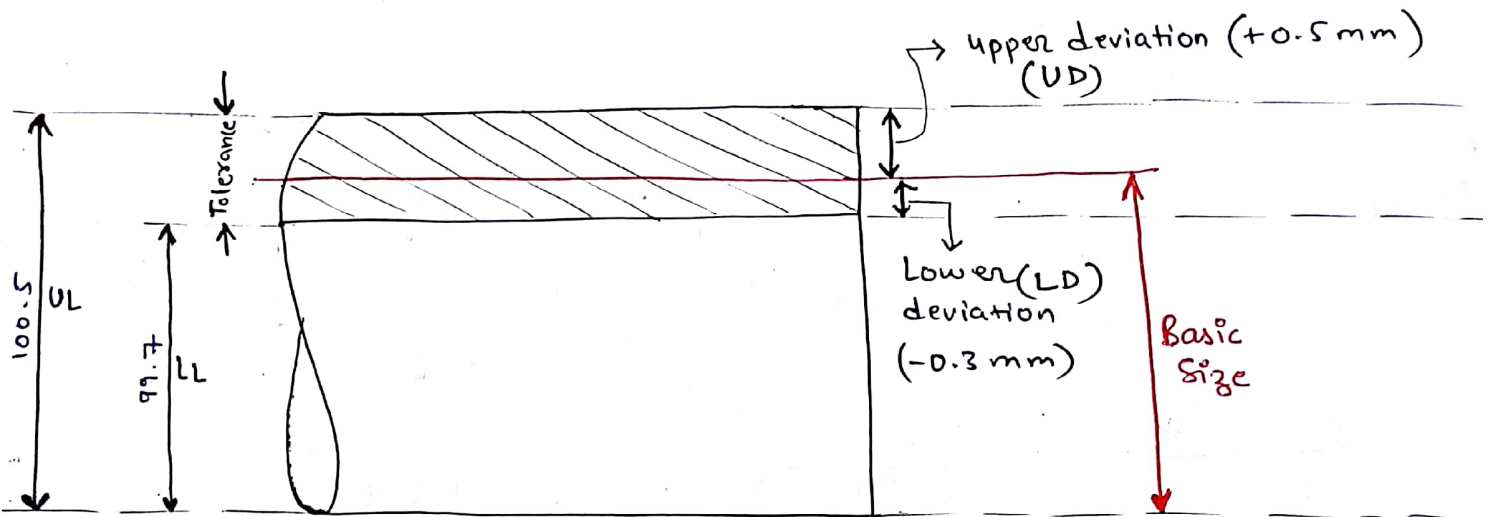 upper deviation (+0.5 mm)
(UD)
Tolerance
100.5
UL
99.7
LL
Lower (LD)
deviation
(-0.3 mm)
Basic
Size